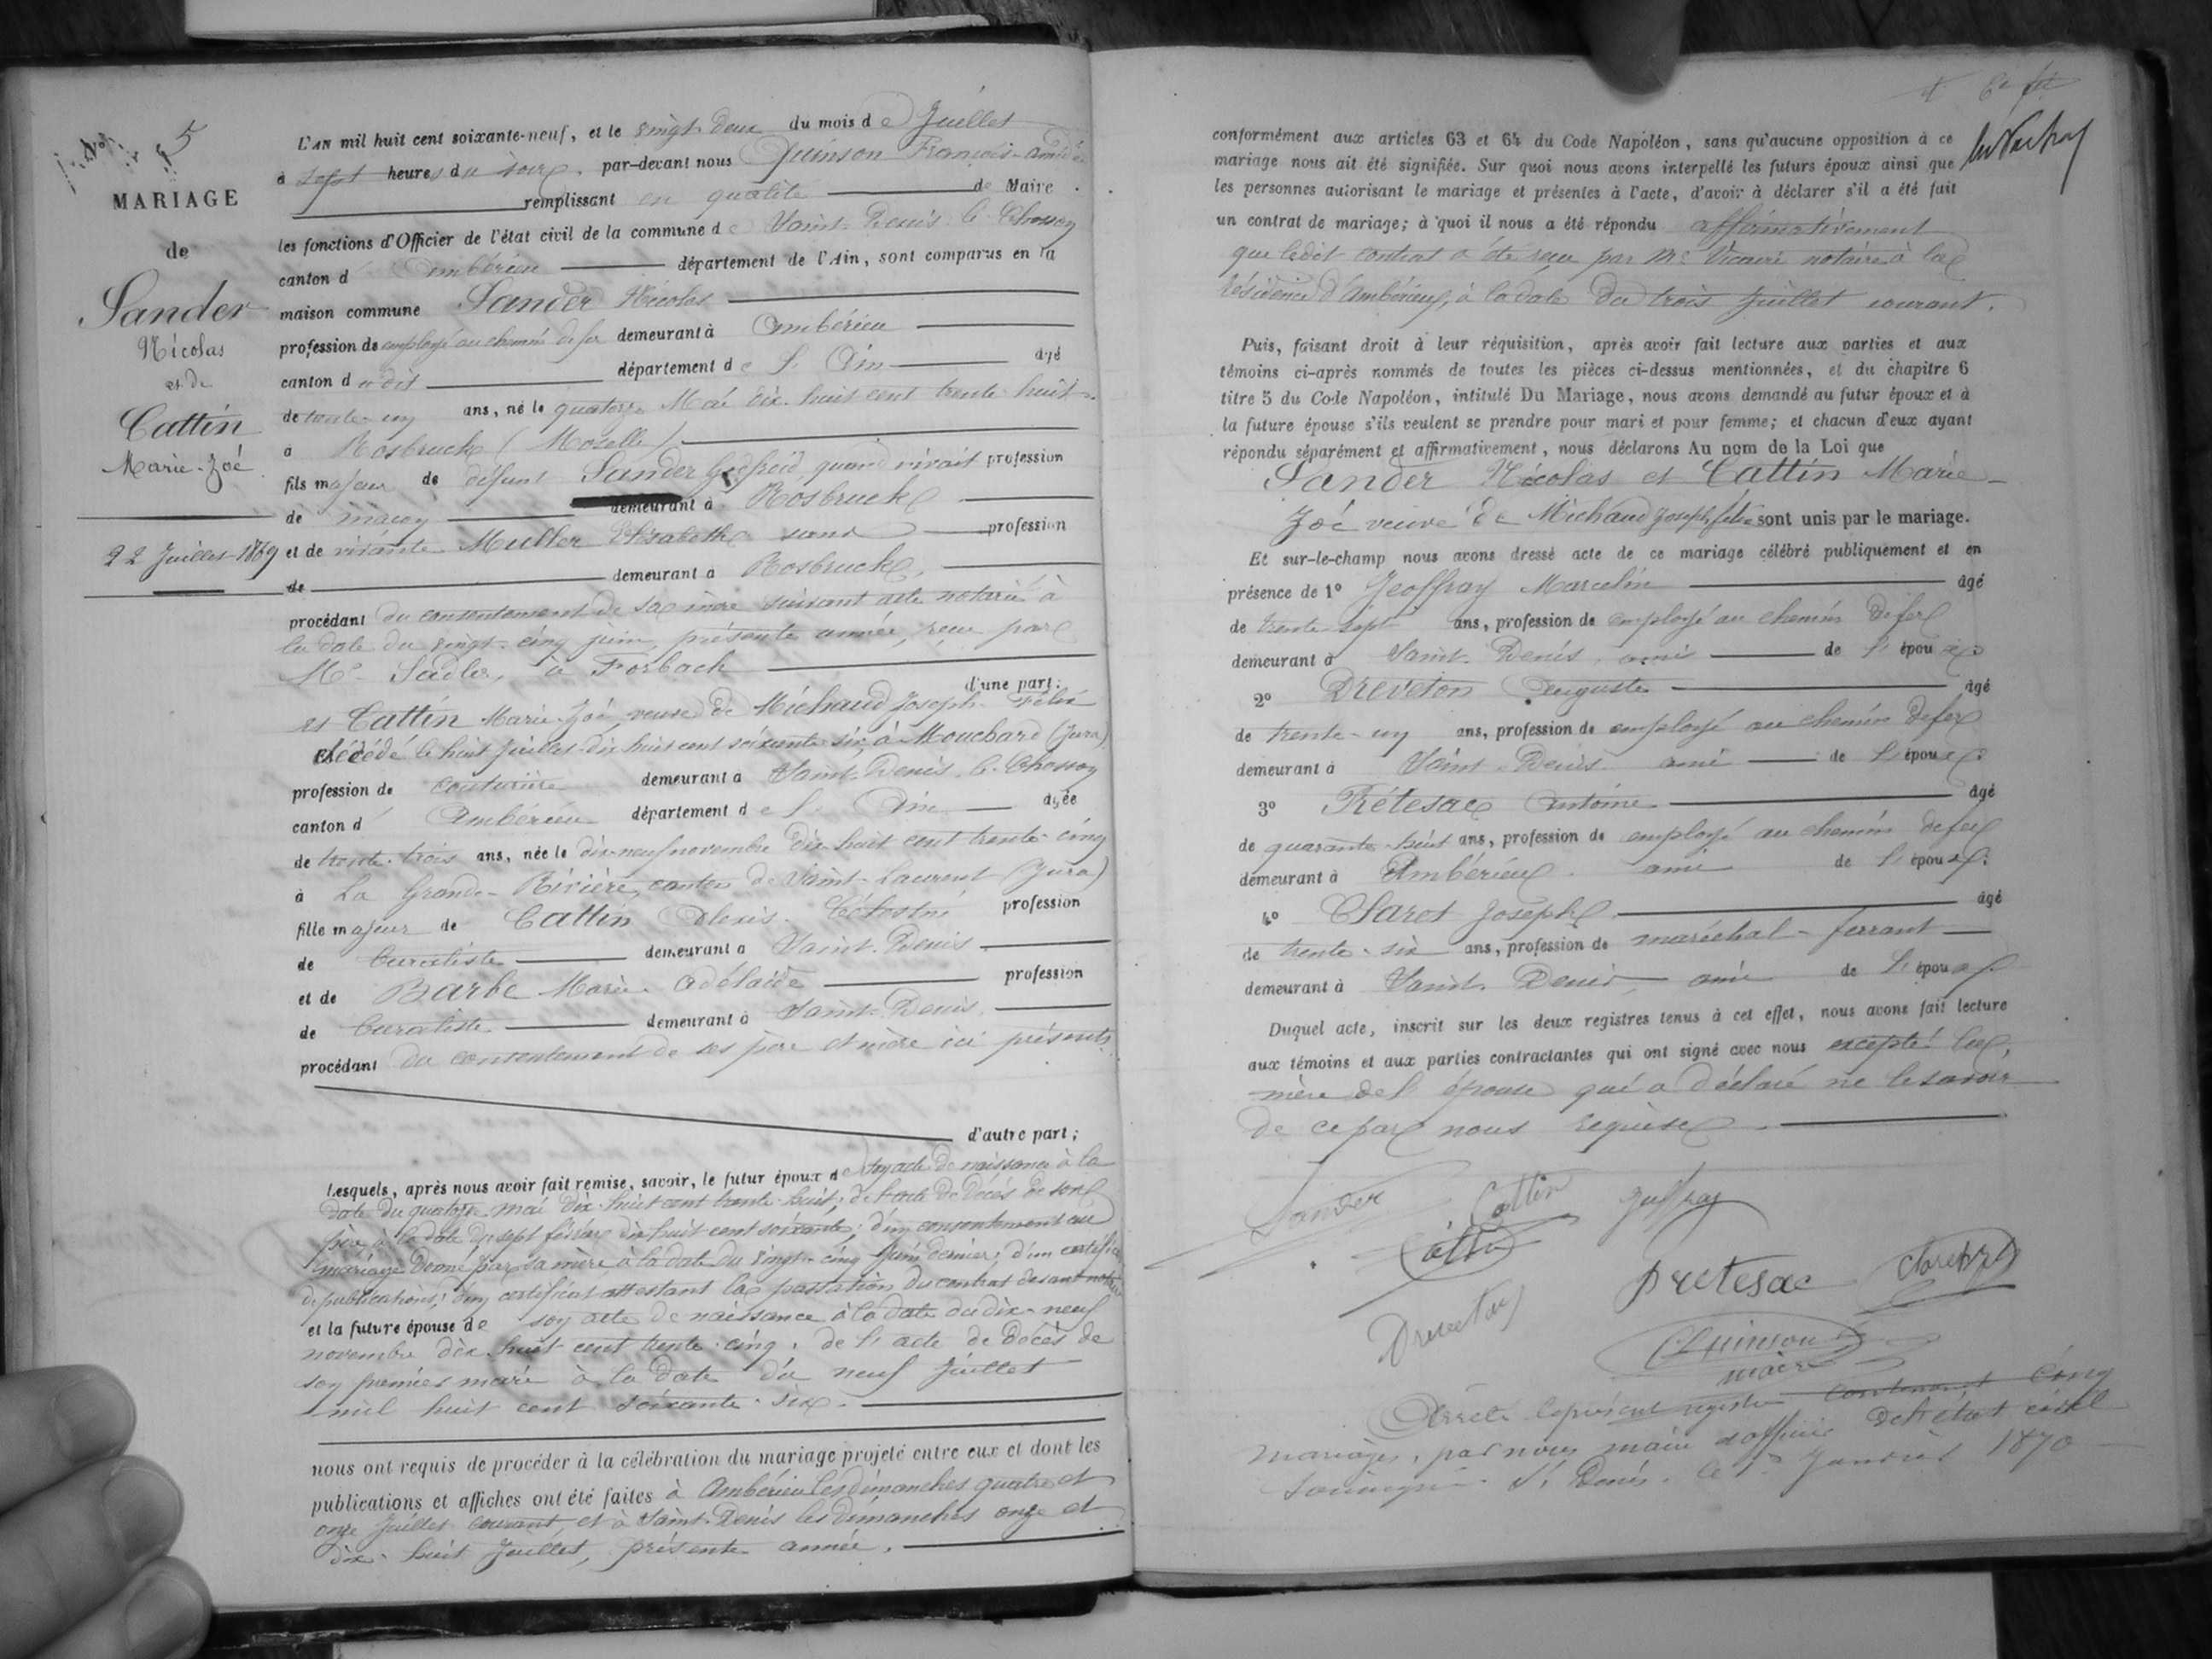 No 5
MARIAGE
de
Sander
Nicolas
et de
Cattin
Marie-Zoé
22 Juillet 1869
L'AN mil huit cent soixante-neuf, et le vingt-deux du mois de Juillet
à sept heures du soir, par-devant nous Quinson François-Amédée
remplissant en qualité de Maire
les fonctions d'Officier de l'état civil de la commune de Saint-Denis-le-Chosson
canton d'Ambérieu département de l'Ain, sont comparus en la
maison commune Sander Nicolas
profession de employé au chemin de fer demeurant à Ambérieu
canton du dit département de l'Ain âgé
de trente-un ans, né le quatorze Mai dix-huit cent trente-huit
à Rosbruck (Moselle)
fils majeur de défunt Sander Godfreid quand vivait profession
de maçon demeurant à Rosbruck
et de vivante Muller Elisabeth sans profession
de demeurant à Rosbruck
procédant du consentement de sa mère suivant acte notarié à
la date du vingt-cinq juin, présente année, reçu par
Me Sadler, à Forbach
d'une part;
et Cattin Marie-Zoé, veuve de Michaud Joseph-Félix
décédé le huit Juillet dix huit cent soixante-six, à Mouchard (Jura)
profession de couturière demeurant à Saint-Denis-le-Chosson
canton d'Ambérieu département de l'Ain âgée
de trente-trois ans, née le dix-neuf novembre dix-huit cent trente-cinq
à La Grande-Rivière, canton de Saint-Laurent (Jura)
fille majeur de Cattin Alexis-Célestin profession
de Buraliste demeurant à Saint-Denis
et de Barbe Marie-Adélaïde profession
de Buraliste demeurant à Saint-Denis
procédant du consentement de ses père et mère ici présents
d'autre part;
Lesquels, après nous avoir fait remise, savoir, le futur époux de son acte de naissance à la
date du quatorze mai dix-huit cent trente-huit; de l'acte de décès de son
père à la date du sept février dix-huit cent soixante; d'un consentement au
mariage donné par sa mère à la date du vingt-cinq Juin dernier; d'un certificat
de publications; d'un certificat attestant la passation du contrat devant notaire
et la future épouse de son acte de naissance à la date du dix-neuf
novembre dix-huit cent trente-cinq; de l'acte de décès de
son premier mari à la date du neuf Juillet
mil huit cent soixante-six.
nous ont requis de procéder à la célébration du mariage projeté entre eux et dont les
publications et affiches ont été faites à Ambérieu les dimanches quatre et
onze Juillet courant, et à Saint-Denis les dimanches onze et
dix-huit Juillet, présente année.
conformément aux articles 63 et 64 du Code Napoléon, sans qu'aucune opposition à ce
mariage nous ait été signifiée. Sur quoi nous avons interpellé les futurs époux ainsi que
les personnes autorisant le mariage et présentes à l'acte, d'avoir à déclarer s'il a été fait
un contrat de mariage; à quoi il nous a été répondu affirmativement
que ledit contrat a été reçu par Me Vicaire notaire à la
résidence d'Ambérieu, à la date du trois Juillet courant.
Puis, faisant droit à leur réquisition, après avoir fait lecture aux parties et aux
témoins ci-après nommés de toutes les pièces ci-dessus mentionnées, et du chapitre 6
titre 5 du Code Napoléon, intitulé Du Mariage, nous avons demandé au futur époux et à
la future épouse s'ils veulent se prendre pour mari et pour femme; et chacun d'eux ayant
répondu séparément et affirmativement, nous déclarons Au nom de la Loi que
Sander Nicolas et Cattin Marie-
Zoé veuve de Michaud Joseph félix sont unis par le mariage.
Et sur-le-champ nous avons dressé acte de ce mariage célébré publiquement et en
présence de 1º Geoffray Marcelin âgé
de trente-sept ans, profession de employé au chemin de fer
demeurant à Saint-Denis, ami de l'époux
2º Dreveton Auguste âgé
de trente-un ans, profession de employé au chemin de fer
demeurant à Saint-Denis ami de l'époux
3º Prétesac Antoine âgé
de quarante-huit ans, profession de employé au chemin de fer
demeurant à Ambérieu ami de l'époux
4º Claret Joseph âgé
de trente-six ans, profession de maréchal-ferrant
demeurant à Saint-Denis, ami de l'époux
Duquel acte, inscrit sur les deux registres tenus à cet effet, nous avons fait lecture
aux témoins et aux parties contractantes qui ont signé avec nous excepté la
mère de l'épouse qui a déclaré ne le savoir
de ce par nous requise.
Sander Cattin Jeoffray
Cattin
Dreveton Pretesac Claret
Quinson
maire
Arrêté le présent registre contenant cinq
mariages, par nous maire et officier de l'état civil
soussigné. St Denis le 1er Janvier 1870